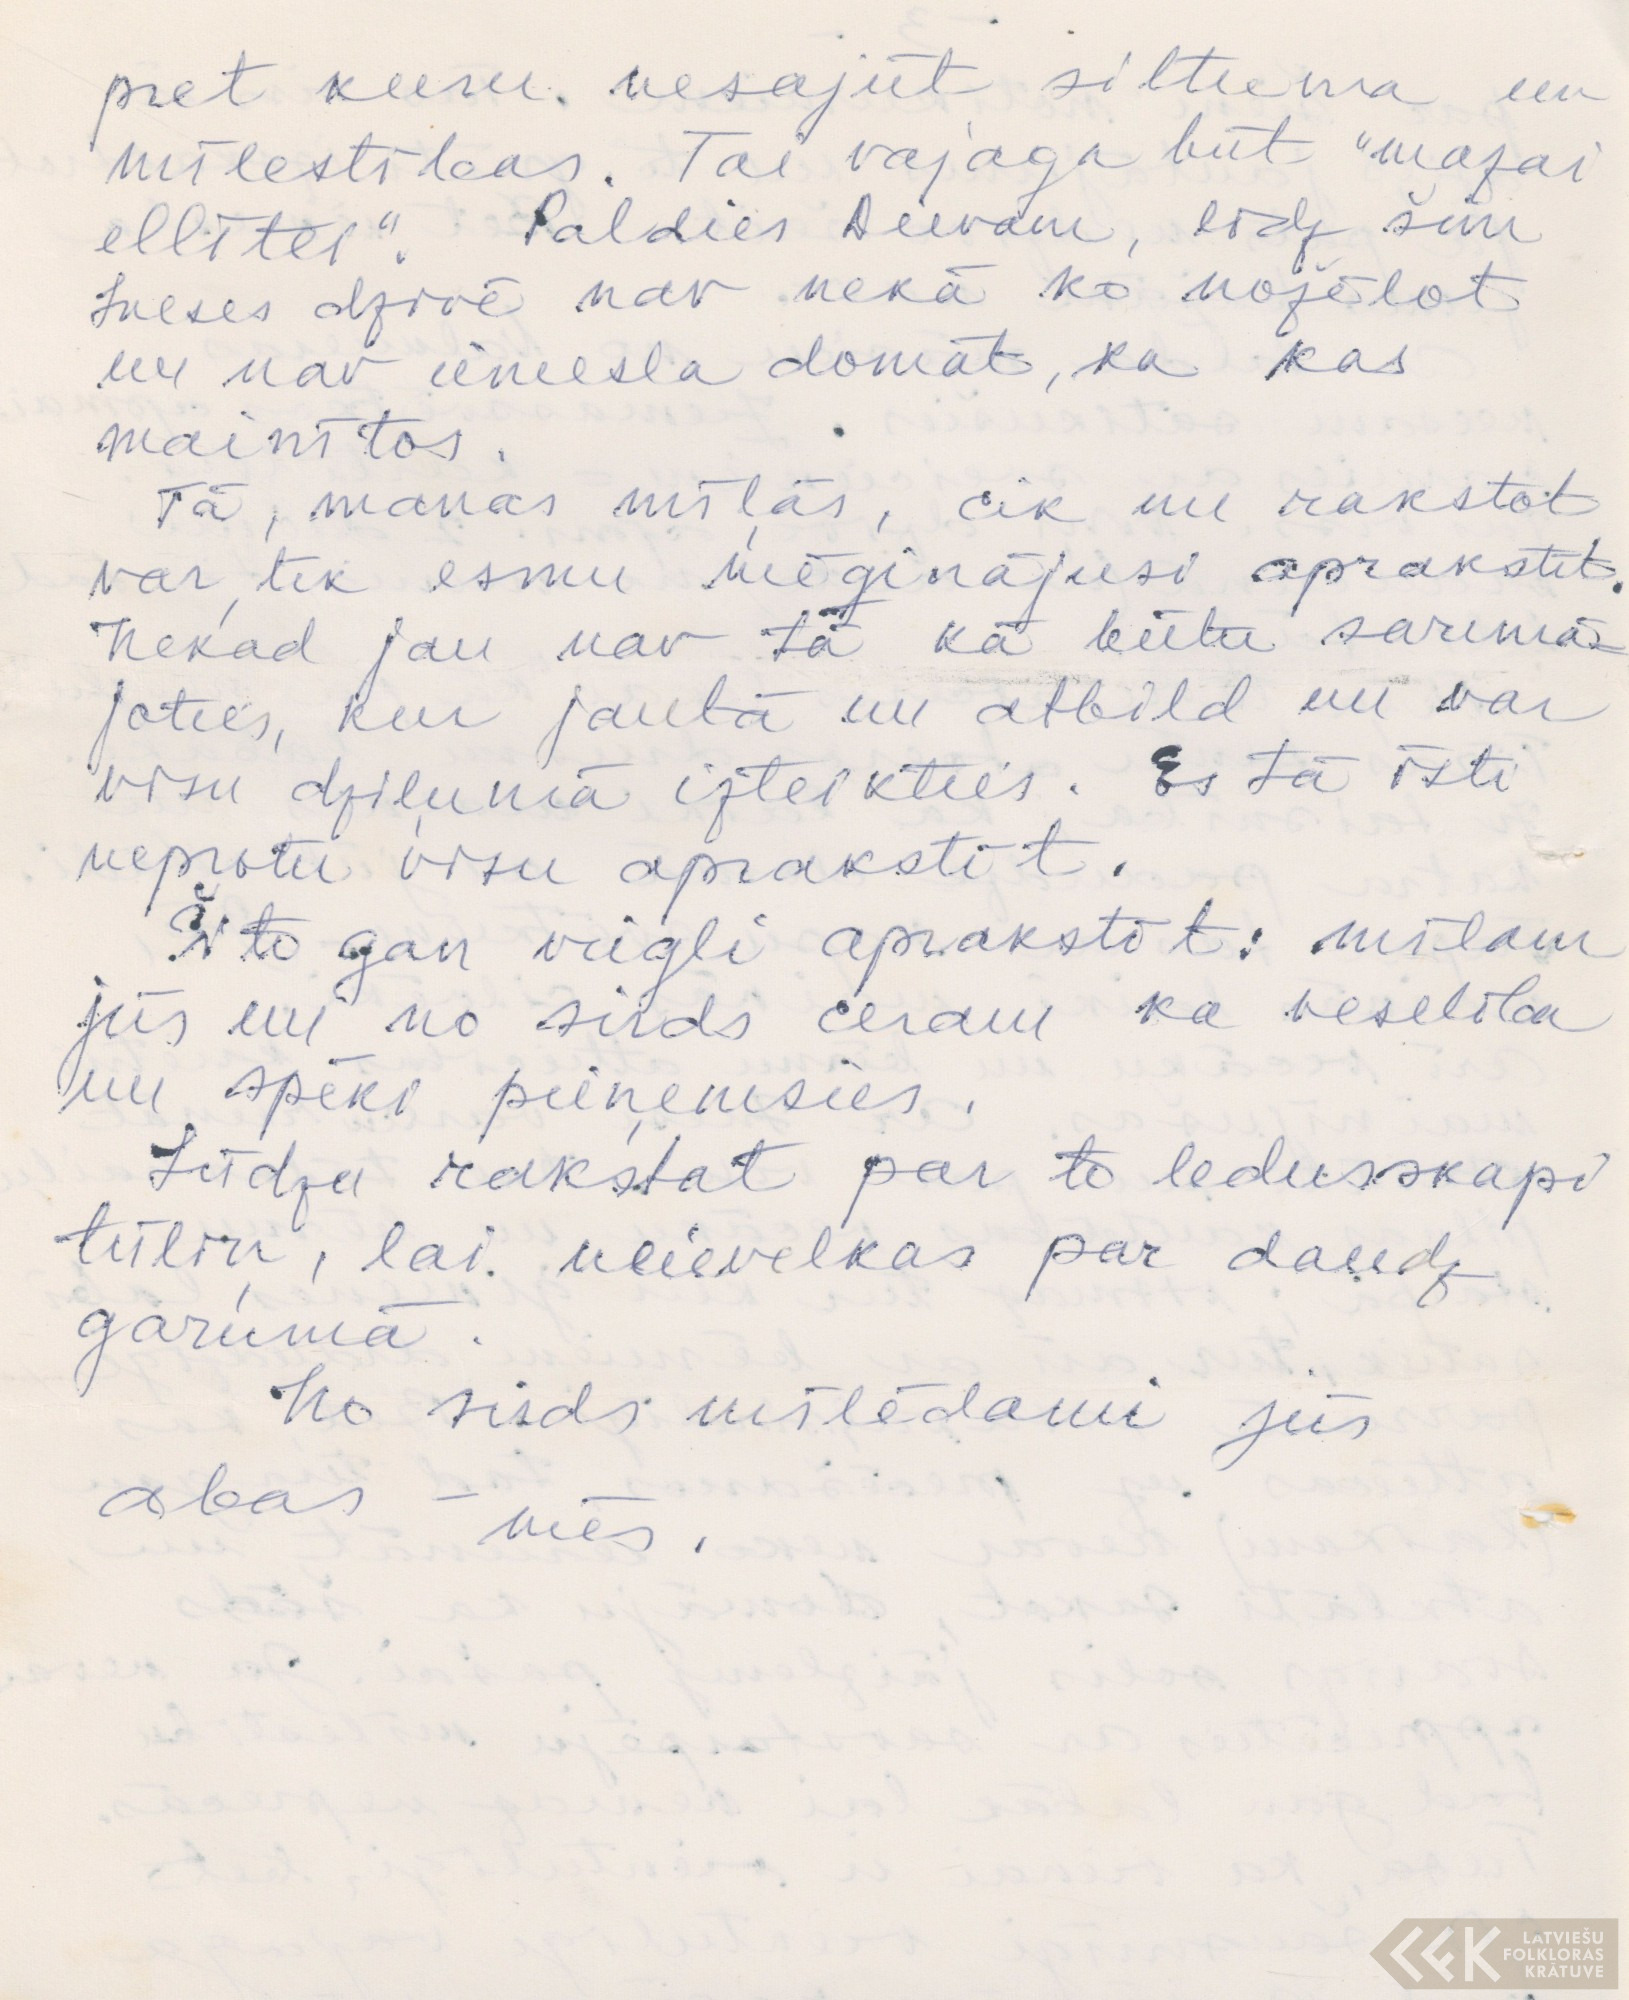 pret kuru nesajūt siltuma un
mīlestības. Tai vajaga būt "mazai
ellītei". Paldies Dievam, līdz šim
Ineses dzīvē nav nekā ko nožēlot
un nav iemesla domāt, ka kas
mainītos.
Tā, manas mīļās, cik nu rakstot
var, tik esmu mēģinājusi aprakstīt.
Nekad jau nav tā kā būtu sarunā-
joties, kur jautā un atbild un var
visu dziļumā izteikties. Es tā īsti
neprotu visu aprakstīt.
Šito gan viegli aprakstīt: mīlam
jūs un no sirds ceram ka veselība
un spēki pieņemsies.
Lūdzu rakstat par to ledusskapi
tūliņ, lai neievelkas par daudz
garumā.
No sirds mīlēdami jūs
abas – mēs.
LATVIEŠU
FOLKLORAS
KRĀTUVE